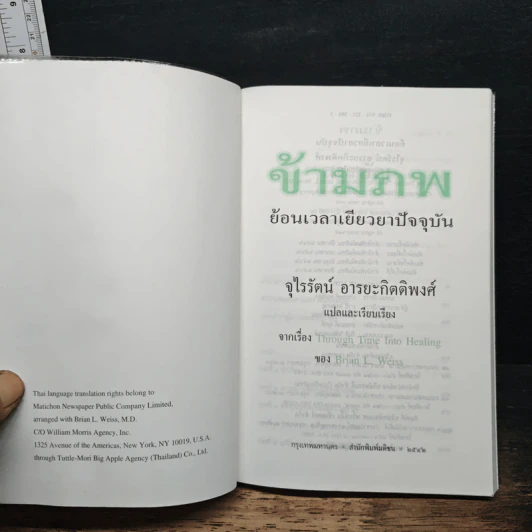 Thai language translation rights belong to
Matichon Newspaper Public Company Limited,
arranged with Brian L. Weiss, M.D.
C/O William Morris Agency, Inc.
1325 Avenue of the Americas, New York, NY 10019, U.S.A
through Tuttle-Mori Big Apple Agency (Thailand) Co., Ltd.
ข้ามภพ
ย้อนเวลาเยียวยาปัจจุบัน
จุไรรัตน์ อารยะกิตติพงศ์
แปลและเรียบเรียง
จากเรื่อง Through Time Into Healing
ของ Brian L. Weiss
กรุงเทพมหานคร • สำนักพิมพ์มติชน • ๒๕๔๒